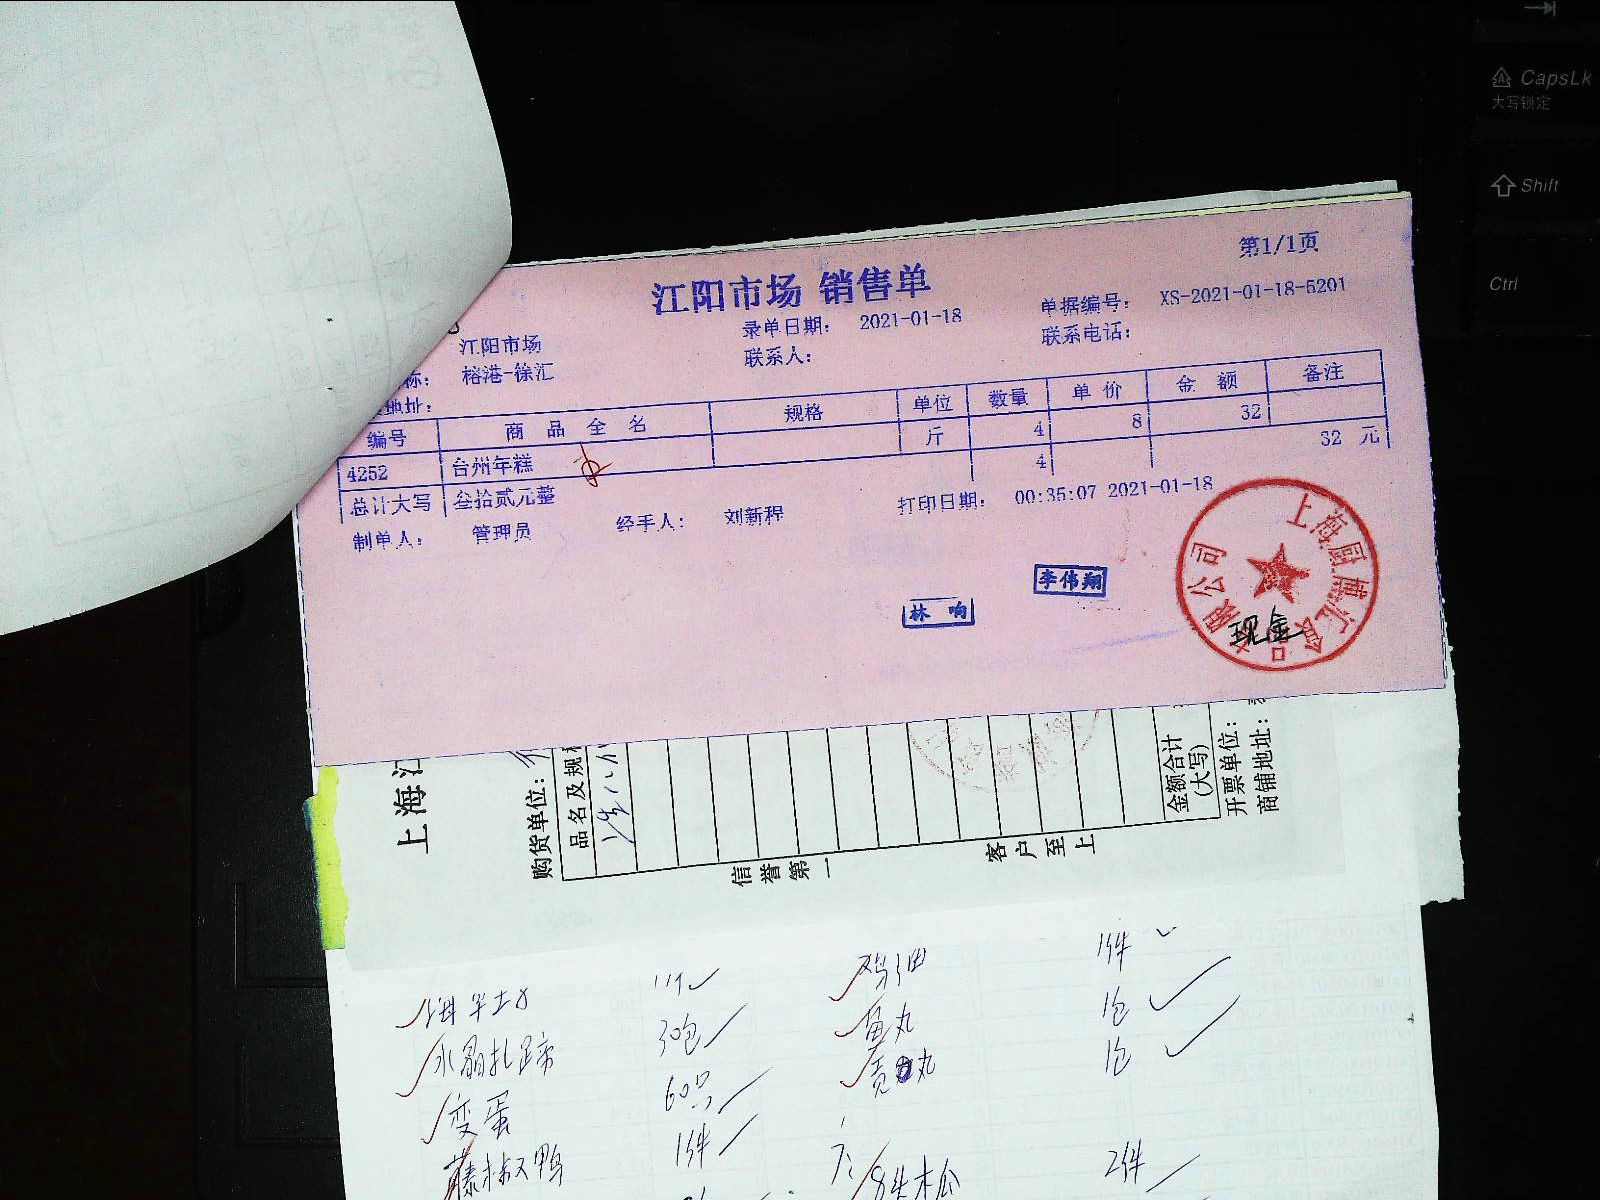 CapsLk
大写锁定
Shift
Ctrl
第1/1页
江阳市场 销售单
录单日期： 2021-01-18
单据编号： XS-2021-01-18-5201
江阳市场
联系人：
联系电话：
称： 榕港-徐汇
地址：
编号 商品全名 规格 单位 数量 单价 金额 备注
4252 台州年糕 斤 4 8 32
总计大写 叁拾贰元整 4 32 元
制单人： 管理员 经手人： 刘新程 打印日期： 00:35:07 2021-01-18
李伟翔
林响
现金
上海
购货单位：
品名及规格
信誉第一
客户至上
金额合计
(大写)
开票单位：
商铺地址：
鸡油 1件
水晶扎蹄 30包 鱼丸 1包
变蛋 60只 贡丸 1包
藤椒鸭 1件
木瓜 2件